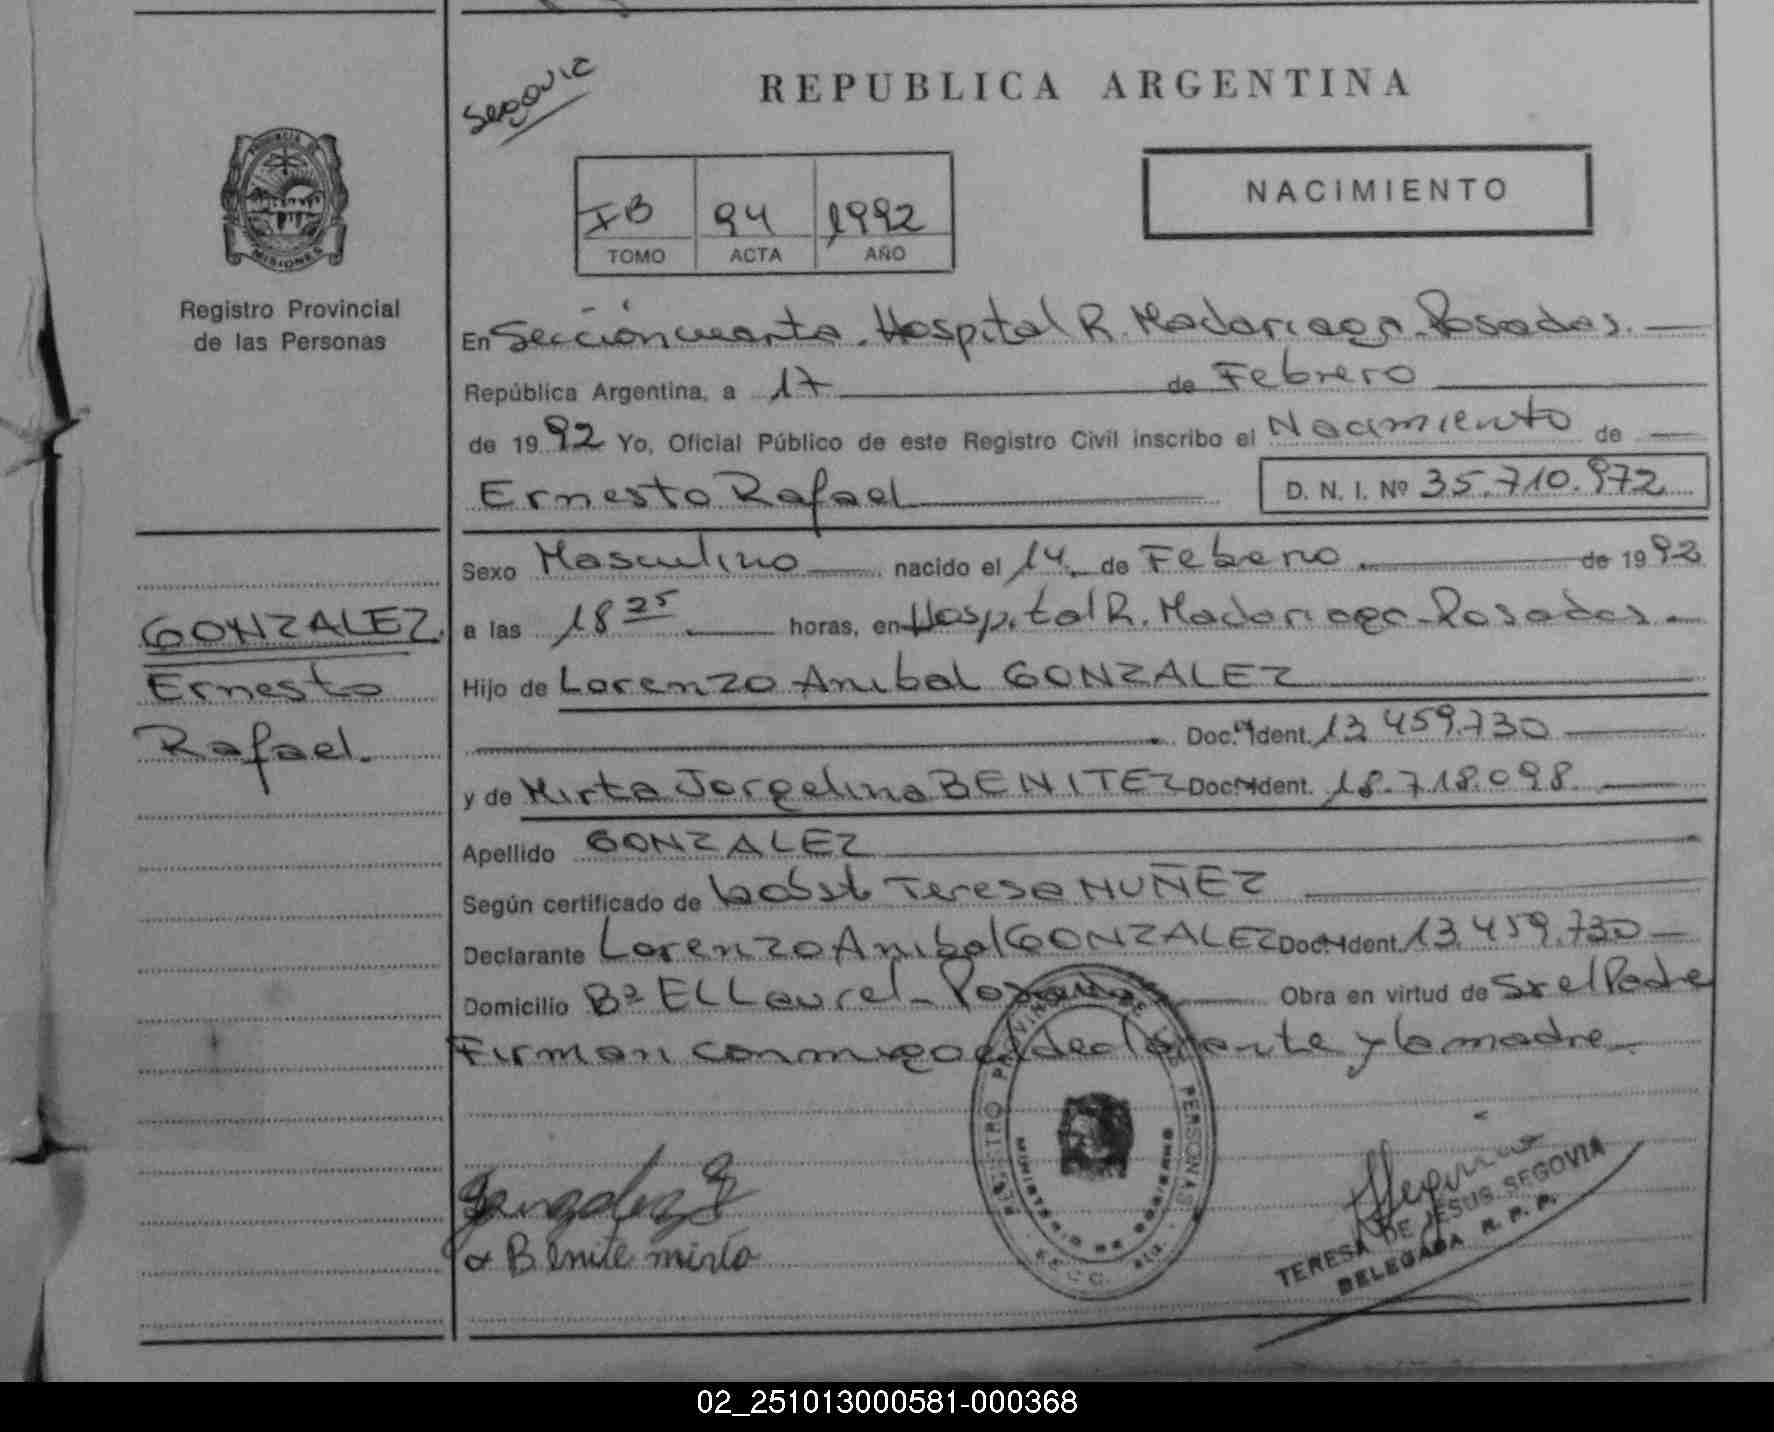 Segovia
REPUBLICA ARGENTINA
PROVINCIA DE
MISIONES
Registro Provincial
de las Personas
IB 94 1992
TOMO ACTA AÑO
NACIMIENTO
En Sección cuarta. Hospital R. Madariaga. Posadas.
República Argentina, a 17 de Febrero
de 1992 Yo, Oficial Público de este Registro Civil inscribo el Nacimiento de
Ernesto Rafael D. N. I. Nº 35.710.972
GONZALEZ
Ernesto
Rafael.
Sexo Masculino nacido el 14 de Febrero de 1992
a las 18 25 horas, en Hospital R. Madariaga - Posadas.
Hijo de Lorenzo Anibal GONZALEZ
Doc. Ident. 13.459.730
y de Mirta Jorgelina BENITEZ Doc. Ident. 18.718.098.
Apellido GONZALEZ
Según certificado de Teresa NUÑEZ
Declarante Lorenzo Anibal GONZALEZ Doc. Ident. 13.459.730
Domicilio Bº EL Laurel - Posadas Obra en virtud de Sr el Padre
Firman conmigo el declarante y la madre
REGISTRO PROVINCIAL DE LAS PERSONAS
MINISTERIO DE GOBIERNO
Gonzalez
Benite mirta
TERESA DE JESUS SEGOVIA
DELEGADA R. P. P.
02_251013000581-000368